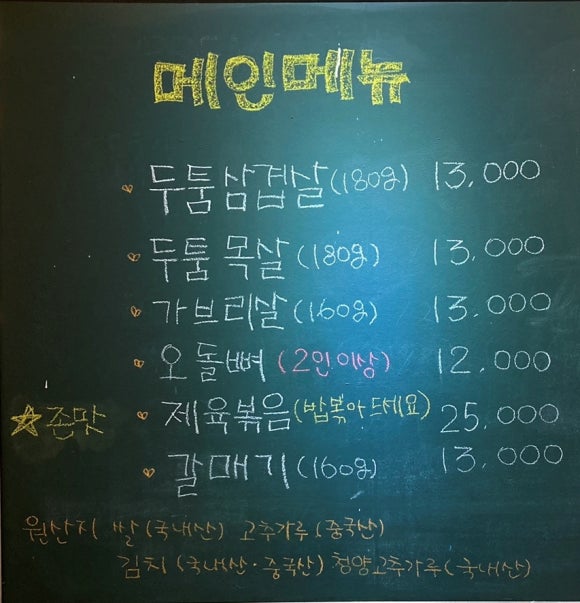 메인메뉴
두툼삼겹살(180g) 13,000
두툼목살(180g) 13,000
가브리살(160g) 13,000
오돌뼈(2인이상) 12,000
☆존맛 제육볶음(밥볶아드세요) 25,000
갈매기(160g) 13,000
원산지 쌀(국내산) 고추가루(중국산)
김치(국내산·중국산) 청양고추가루(국내산)